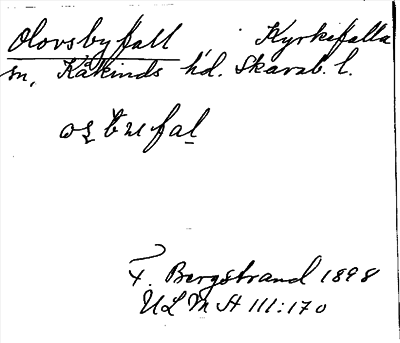 Olovsbyfall Kyrkefalla
sn, Kåkinds hd. Skarab. l.
F. Bergstrand 1898
ULMA 111:170